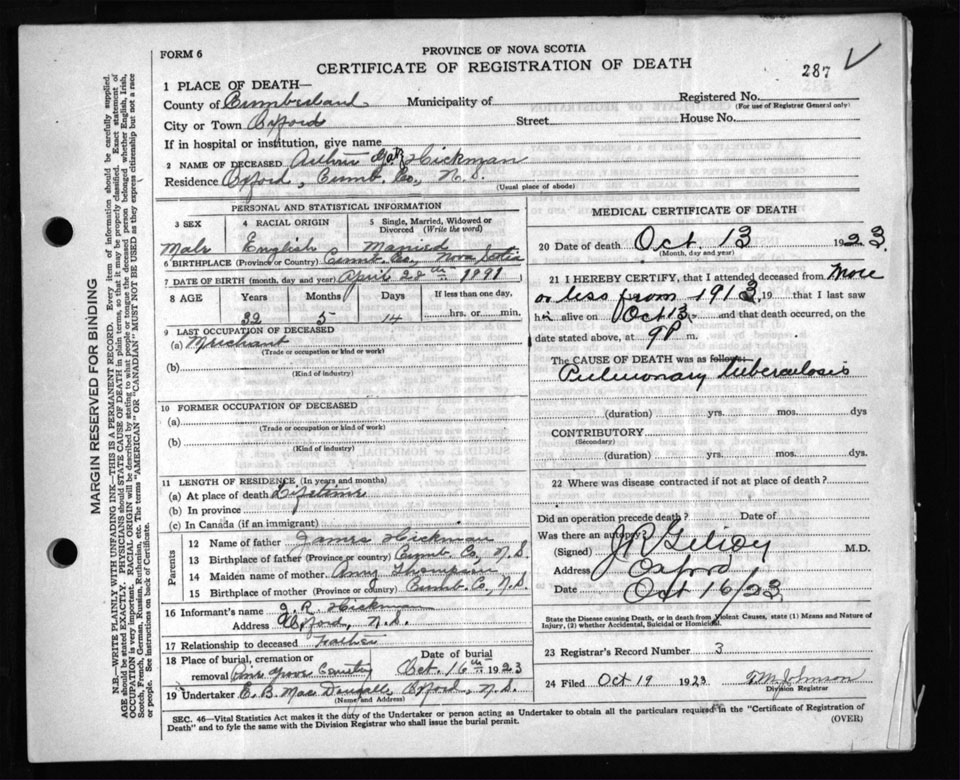 FORM 6
PROVINCE OF NOVA SCOTIA
CERTIFICATE OF REGISTRATION OF DEATH
287
1 PLACE OF DEATH—
County of Cumberland Municipality of Registered No.
(For use of Registrar General only)
City or Town Oxford Street House No.
If in hospital or institution, give name
2 NAME OF DECEASED Arthur Hickman
Residence Oxford, Cumb. Co., N. S.
(Usual place of abode)
PERSONAL AND STATISTICAL INFORMATION
3 SEX 4 RACIAL ORIGIN 5 Single, Married, Widowed or Divorced (Write the word)
Male English Married
6 BIRTHPLACE (Province or Country) Cumb. Co., Nova Scotia
7 DATE OF BIRTH (month, day and year) April 28th 1891
8 AGE Years Months Days If less than one day,
32 5 14 hrs. or min.
9 LAST OCCUPATION OF DECEASED
(a) Merchant
(Trade or occupation or kind or work)
(b)
(Kind of industry)
10 FORMER OCCUPATION OF DECEASED
(a)
(Trade or occupation or kind of work)
(b)
(Kind of industry)
11 LENGTH OF RESIDENCE (In years and months)
(a) At place of death Lifetime
(b) In province
(c) In Canada (if an immigrant)
Parents
12 Name of father James Hickman
13 Birthplace of father (Province or country) Cumb. Co, N. S.
14 Maiden name of mother Amy Thompson
15 Birthplace of mother (Province or country) Cumb. Co, N. S.
16 Informant's name J. R. Hickman
Address Oxford, N. S.
17 Relationship to deceased Father
18 Place of burial, cremation or removal Pine Grove Cemetery Date of burial Oct. 16th 1923
19 Undertaker E. B. MacDougall, Oxford, N. S.
(Name and Address)
MEDICAL CERTIFICATE OF DEATH
20 Date of death Oct. 13 1923
(Month, day and year)
21 I HEREBY CERTIFY, that I attended deceased from More
or less from 1913, 19 that I last saw
him alive on Oct 13 and that death occurred, on
date stated above, at 9 P m.
The CAUSE OF DEATH was as follows
Pulmonary tuberculosis
(duration) yrs. mos. dys
CONTRIBUTORY
(Secondary)
(duration) yrs. mos. dys.
22 Where was disease contracted if not at place of death?
Did an operation precede death? Date of
Was there an autopsy?
(Signed) J R Gilroy M.D.
Address Oxford
Date Oct 16/23
State the Disease causing Death, or in death from Violent Causes, state (1) Means and Nature of Injury, (2) whether Accidental, Suicidal or Homicidal.
23 Registrar's Record Number 3
24 Filed Oct 19 1923 Johnson
Division Registrar
SEC. 46—Vital Statistics Act makes it the duty of the Undertaker or person acting as Undertaker to obtain all the particulars required in the "Certificate of Registration of
Death" and to fyle the same with the Division Registrar who shall issue the burial permit. (OVER)
MARGIN RESERVED FOR BINDING
N.B.—WRITE PLAINLY WITH UNFADING INK—THIS IS A PERMANENT RECORD. Every item of information should be carefully supplied.
AGE should be stated EXACTLY. PHYSICIANS should STATE CAUSE OF DEATH in plain terms, so that it may be properly classified. Exact statement of
OCCUPATION is very important. RACIAL ORIGIN will be described by stating to what people or tongue the deceased person belonged, whether English, Irish,
Scotch, French, German, Russian, Ruthenian, etc. The terms "AMERICAN" OR "CANADIAN" MUST NOT BE USED as they express citizenship but not a race
or people. See instructions on back of Certificate.